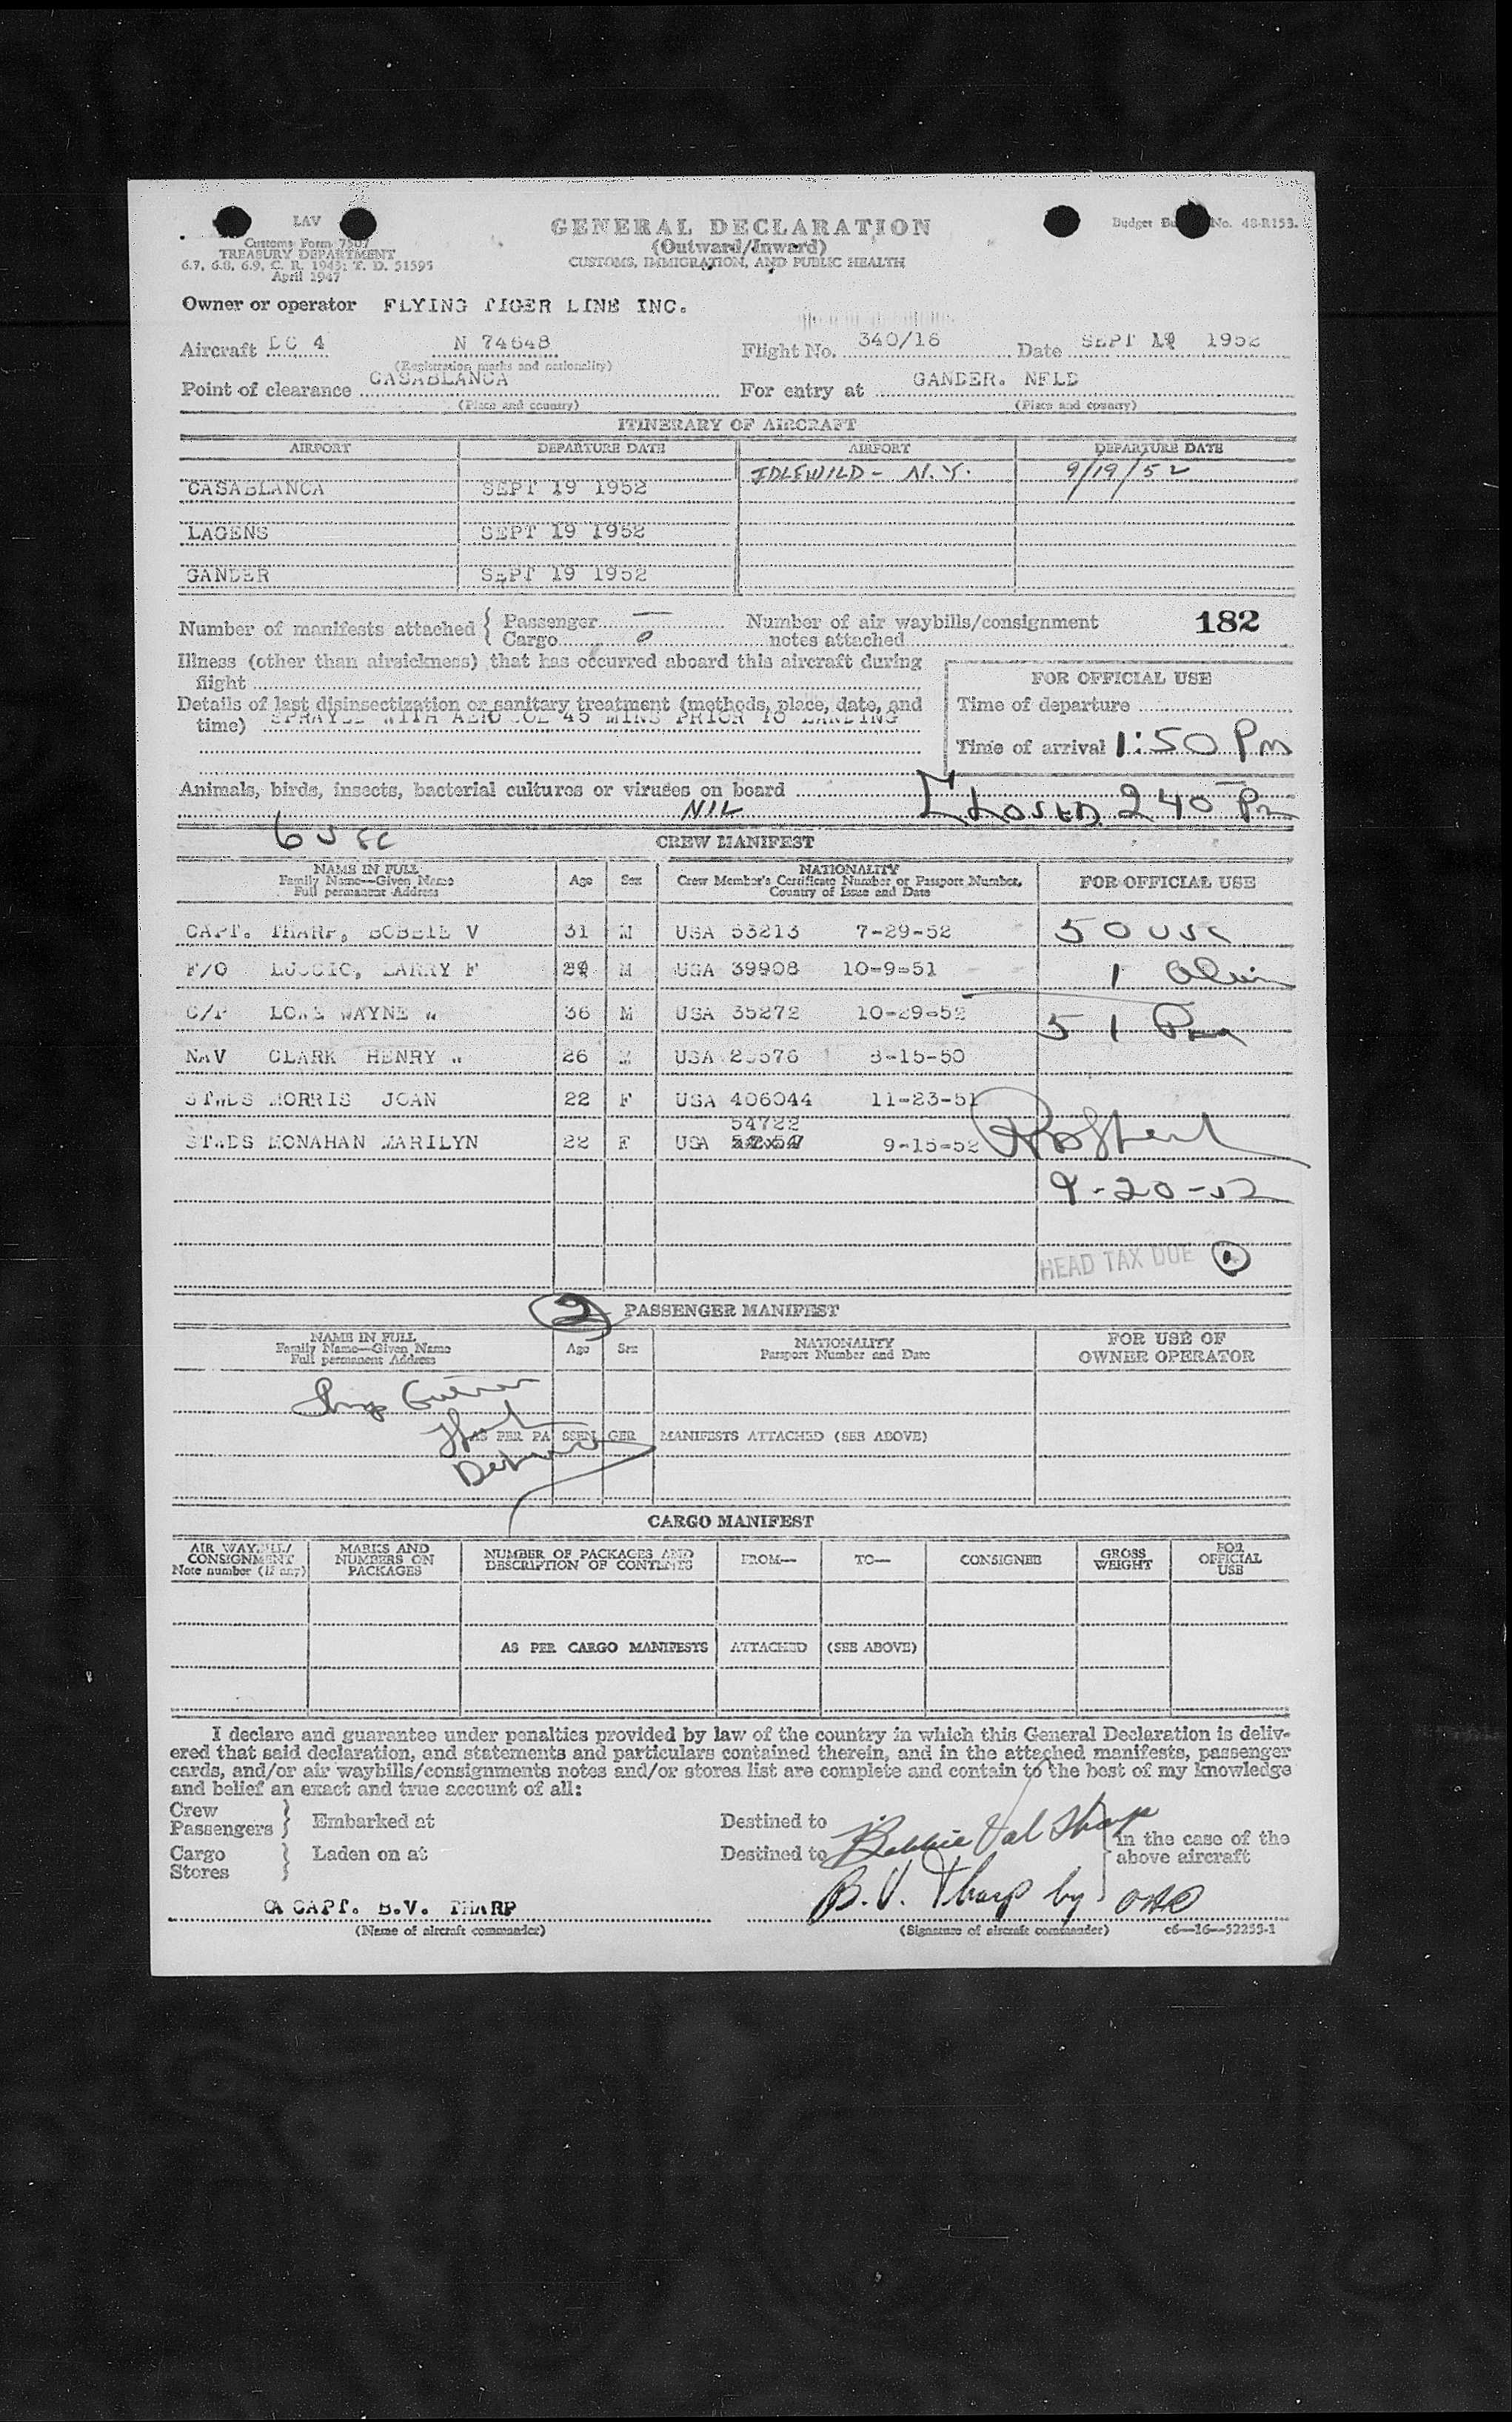 LAV
Customs Form 7507
TREASURY DEPARTMENT
6.7, 6.8, 6.9, C. R. 1943; T. D. 51595
April 1947
GENERAL DECLARATION
(Outward/Inward)
CUSTOMS, IMMIGRATION, AND PUBLIC HEALTH
Budget No. 48-R153.
Owner or operator FLYING TIGER LINE INC.
Aircraft DC 4 N 74648 Flight No. 340/16 Date SEPT 19 1952
(Registration marks and nationality)
Point of clearance CASABLANCA For entry at GANDER. NFLD
(Place and country) (Place and country)
ITINERARY OF AIRCRAFT
AIRPORT DEPARTURE DATE AIRPORT DEPARTURE DATE
IDLEWILD - N.Y. 9/19/52
CASABLANCA SEPT 19 1952
LAGENS SEPT 19 1952
GANDER SEPT 19 1952
Number of manifests attached { Passenger — Number of air waybills/consignment 182
Cargo 0 notes attached
Illness (other than airsickness) that has occurred aboard this aircraft during
flight
FOR OFFICIAL USE
Details of last disinsectization or sanitary treatment (methods, place, date, and
time) SPRAYED WITH AEROSOL 45 MINS PRIOR TO LANDING
Time of departure
Time of arrival 1:50 Pm
Animals, birds, insects, bacterial cultures or viruses on board
NIL
Closed 2 40 Pm
6 USC
CREW MANIFEST
NAME IN FULL
Family Name—Given Name
Full permanent Address
Age Sex
NATIONALITY
Crew Member's Certificate Number or Passport Number,
Country of Issue and Date
FOR OFFICIAL USE
CAPT. THARP, BOBBIE V 31 M USA 53213 7-29-52 50 USC
F/O LARRY F M USA 39908 10-9-51 1 Alien
C/P LONG WAYNE W 36 M USA 35272 10-29-52 51
NAV CLARK HENRY W 26 M USA 8-15-50
STWDS MORRIS JOAN 22 F USA 406044 11-23-51
54722
STWDS MONAHAN MARILYN 22 F USA 9-15-52
9-20-52
HEAD TAX DUE
2 PASSENGER MANIFEST
NAME IN FULL
Family Name—Given Name
Full permanent Address
Age Sex
NATIONALITY
Passport Number and Date
FOR USE OF
OWNER OPERATOR
AS PER PASSENGER MANIFESTS ATTACHED (SEE ABOVE)
CARGO MANIFEST
AIR WAYBILL/
CONSIGNMENT
Note number (if any)
MARKS AND
NUMBERS ON
PACKAGES
NUMBER OF PACKAGES AND
DESCRIPTION OF CONTENTS
FROM— TO— CONSIGNEE
GROSS
WEIGHT
FOR
OFFICIAL
USE
AS PER CARGO MANIFESTS ATTACHED (SEE ABOVE)
I declare and guarantee under penalties provided by law of the country in which this General Declaration is deliv-
ered that said declaration, and statements and particulars contained therein, and in the attached manifests, passenger
cards, and/or air waybills/consignments notes and/or stores list are complete and contain to the best of my knowledge
and belief an exact and true account of all:
Crew
Passengers } Embarked at Destined to
Cargo
Stores } Laden on at Destined to
Bobbie Val Tharp
in the case of the
above aircraft
B. V. Tharp by
CAPT. B.V. THARP
(Name of aircraft commander) (Signature of aircraft commander) c6—16—52253-1